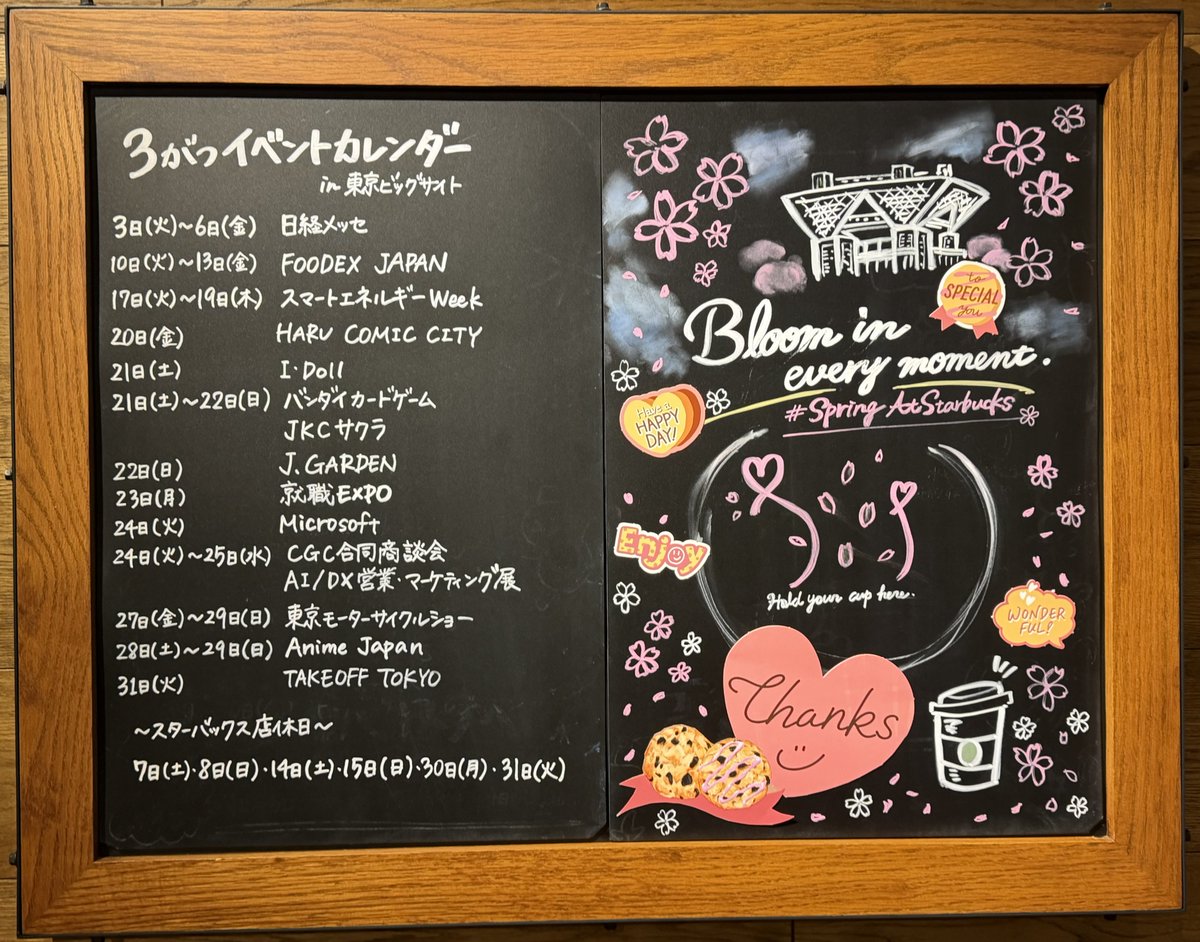 3がつイベントカレンダー
in 東京ビッグサイト
3日(火)～6日(金) 日経メッセ
10日(火)～13日(金) FOODEX JAPAN
17日(火)～19日(木) スマートエネルギーWeek
20日(金) HARU COMIC CITY
21日(土) I・Doll
21日(土)～22日(日) バンダイカードゲーム
JKCサクラ
22日(日) J.GARDEN
23日(月) 就職EXPO
24日(火) Microsoft
24日(火)～25日(水) CGC合同商談会
AI/DX営業・マーケティング展
27日(金)～29日(日) 東京モーターサイクルショー
28日(土)～29日(日) Anime Japan
31日(火) TAKEOFF TOKYO
～スターバックス店休日～
7日(土)・8日(日)・14日(土)・15日(日)・30日(月)・31日(火)
to
SPECIAL
you
Bloom in
every moment.
#Spring At Starbucks
Have a
HAPPY
DAY!
Enjoy
Hold your cup here.
WONDER
FUL!
Thanks